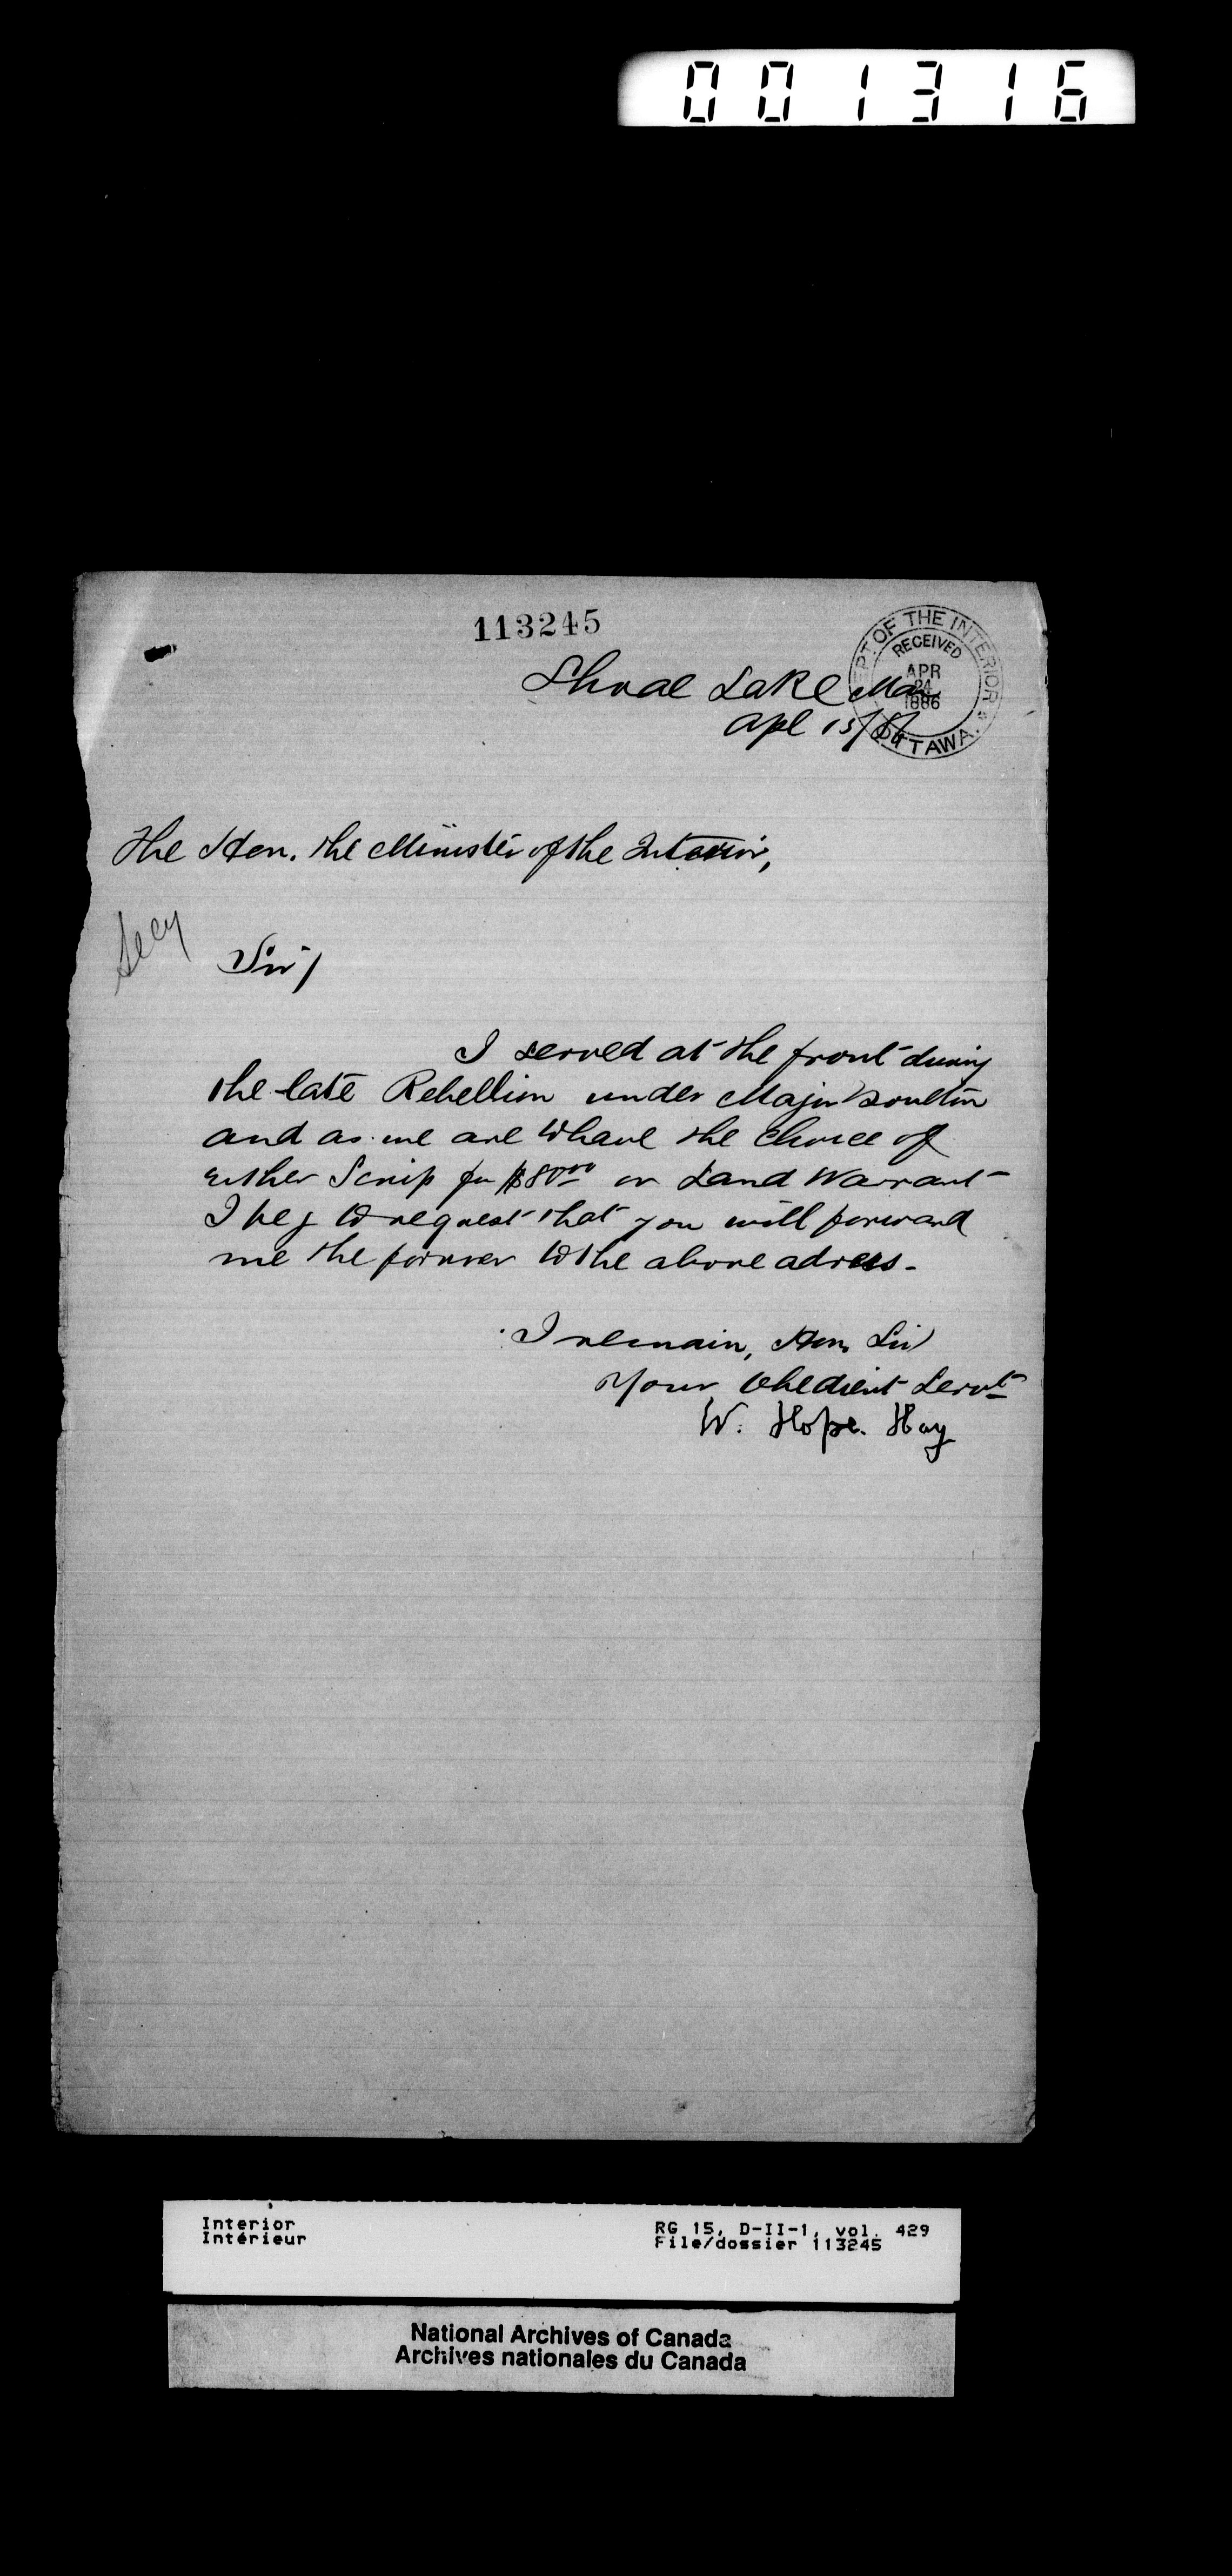 001316
113245
DEPT. OF THE INTERIOR
RECEIVED
APR
24
1886
OTTAWA.
Shoal Lake Man
Apl 15/86
The Hon. the Minister of the Interior,
Secy
Sir/
I served at the front during
the late Rebellion under Major Boulton
and as we are to have the choice of
either Scrip for $80.00 or Land Warrant
I beg to request that you will forward
me the former to the above adress.
I remain, Hon Sir
Your Obedient Servt
W. Hope. Hay
Interior
Intérieur
RG 15, D-II-1, vol. 429
File/dossier 113245
National Archives of Canada
Archives nationales du Canada